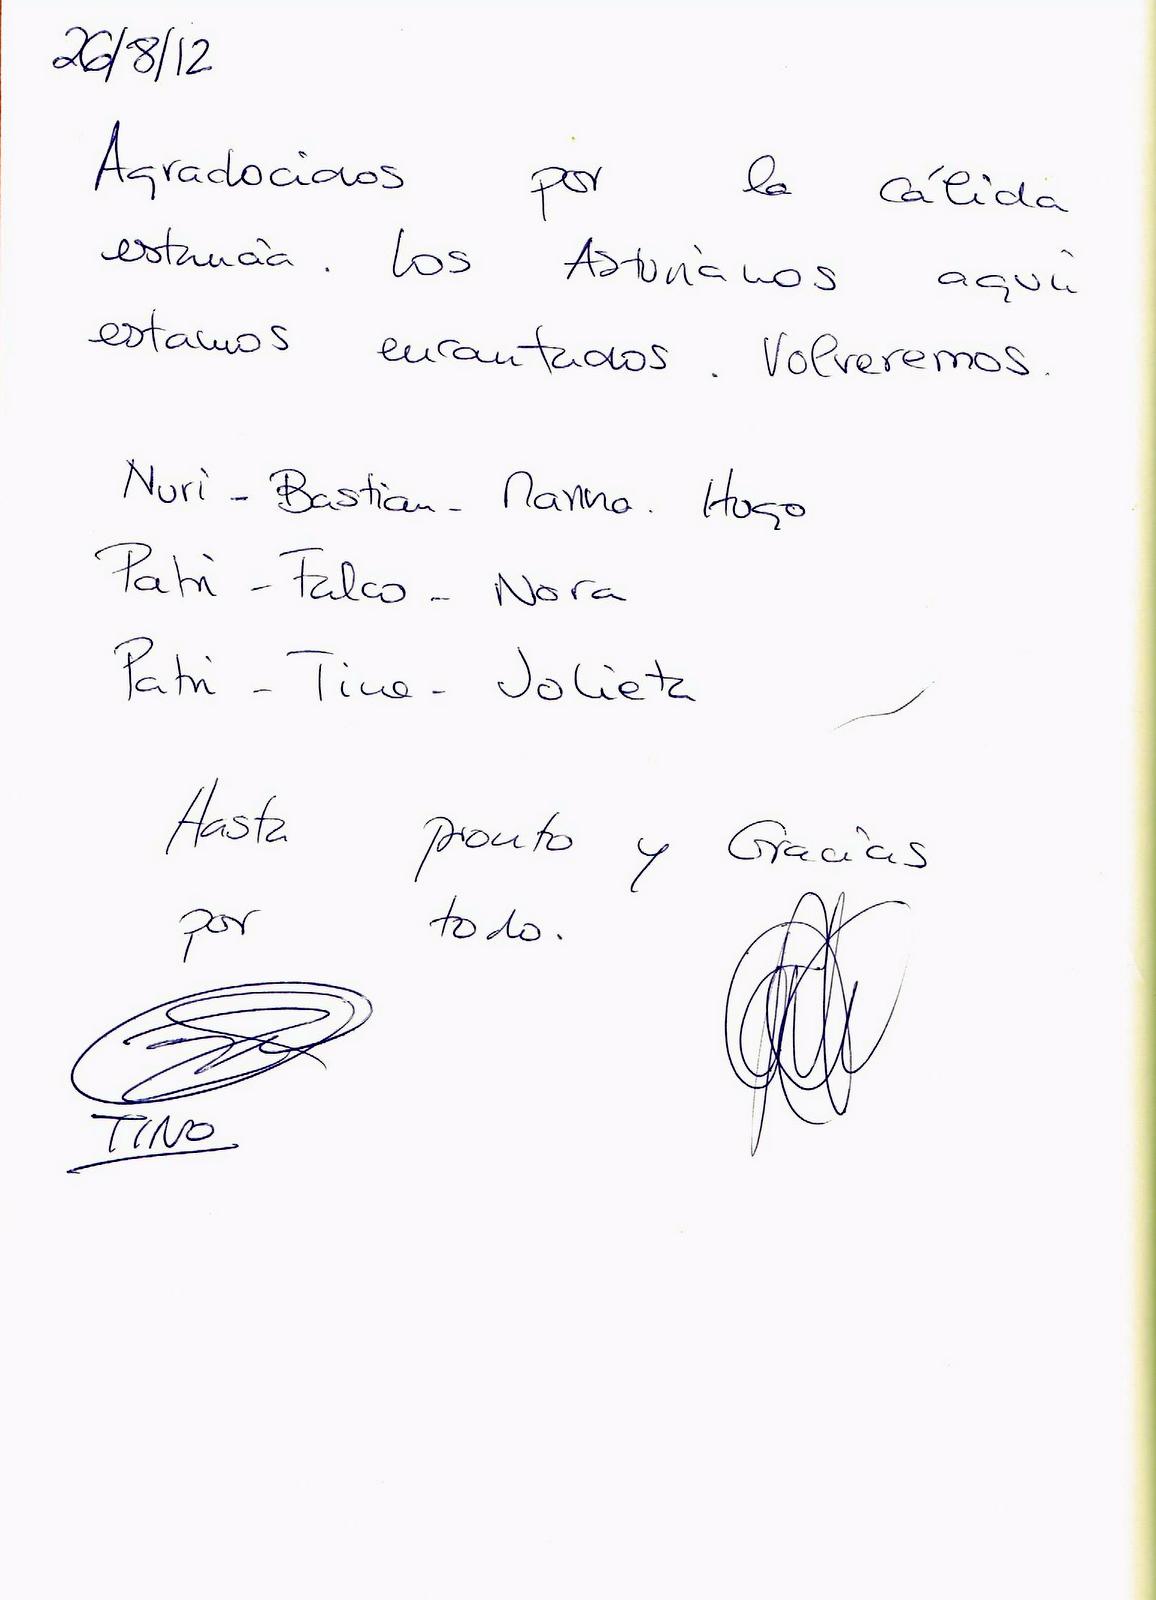 26/8/12
Agradocidos por la cálida
estancia. Los Asturianos aquí
estamos encantados. Volveremos.
Nuri - Bastian - . Hugo
Patri - Falco - Nora
Patri - Tino - Julieta
Hasta pronto y Gracias
por todo.
TINO